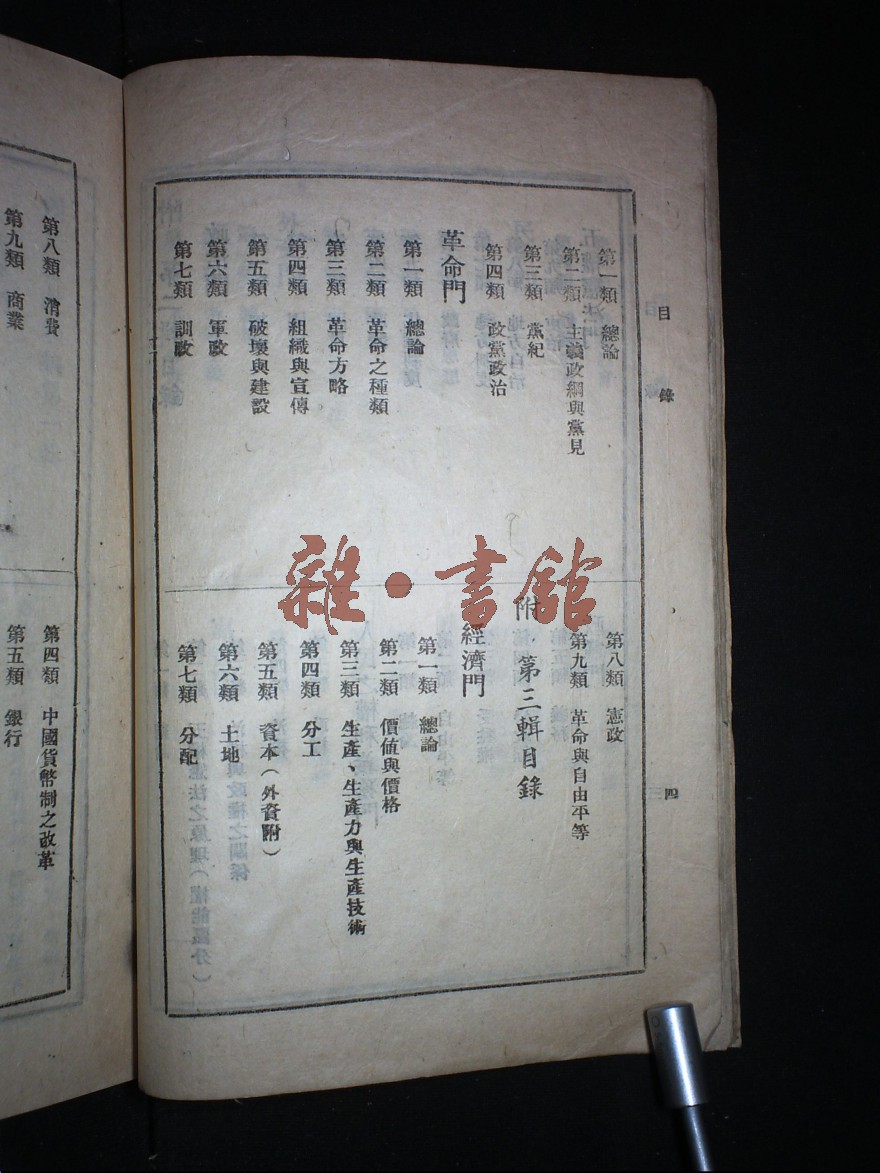 目錄
四
第一類 總論
第二類 主義政綱與黨見
第三類 黨紀
第四類 政黨政治
革命門
第一類 總論
第二類 革命之種類
第三類 革命方略
第四類 組織與宣傳
第五類 破壞與建設
第六類 軍政
第七類 訓政
第八類 憲政
第九類 革命與自由平等
附 第三輯目錄
經濟門
第一類 總論
第二類 價値與價格
第三類 生產、生產力與生產技術
第四類 分工
第五類 資本（外資附）
第六類 土地
第七類 分配
第八類 消費
第九類 商業
第四類 中國貨幣制之改革
第五類 銀行
雜·書館